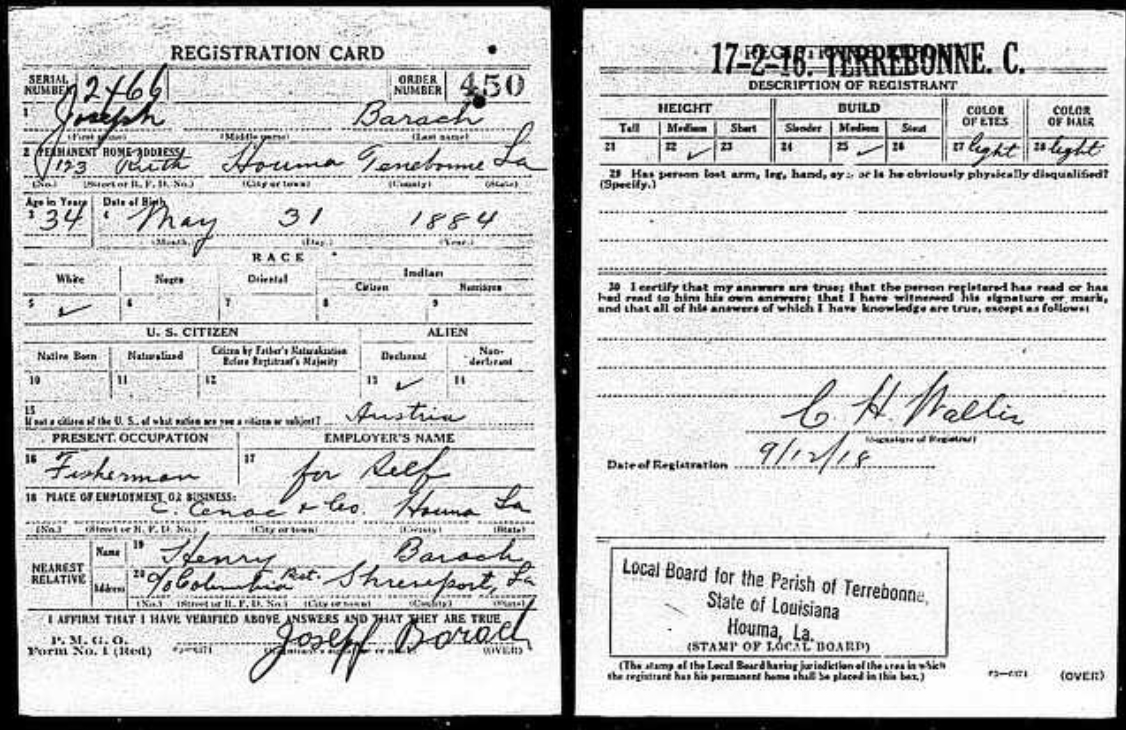 REGISTRATION CARD
SERIAL NUMBER 2466 ORDER NUMBER 450
1 Joseph Barach
(First name) (Middle name) (Last name)
2 PERMANENT HOME ADDRESS:
123 Ruth Houma Terrebonne La
(No.) (Street or R. F. D. No.) (City or town) (County) (State)
Age in Years Date of Birth
3 34 4 May 31 1884
(Month.) (Day.) (Year.)
RACE
White Negro Oriental Indian
Citizen Noncitizen
5 ✓ 6 7 8 9
U. S. CITIZEN ALIEN
Native Born Naturalized Citizen by Father's Naturalization Before Registrant's Majority Declarant Non-declarant
10 11 12 13 ✓ 14
15
If not a citizen of the U. S., of what nation are you a citizen or subject? Austria
PRESENT OCCUPATION EMPLOYER'S NAME
16 Fisherman 17 for Self
18 PLACE OF EMPLOYMENT OR BUSINESS:
C. Cenac & Co. Houma La
(No.) (Street or R. F. D. No.) (City or town) (County) (State)
NEAREST RELATIVE Name 19 Henry Barach
Address 20 c/o Columbia Rest. Shreveport, La
(No.) (Street or R. F. D. No.) (City or town) (County) (State)
I AFFIRM THAT I HAVE VERIFIED ABOVE ANSWERS AND THAT THEY ARE TRUE
P. M. G. O.
Form No. 1 (Red) Joseph Barach (OVER)
17-2-16. TERREBONNE. C.
DESCRIPTION OF REGISTRANT
HEIGHT BUILD COLOR OF EYES COLOR OF HAIR
Tall Medium Short Slender Medium Stout
21 22 ✓ 23 24 25 ✓ 26 27 light 28 light
29 Has person lost arm, leg, hand, eye, or is he obviously physically disqualified?
(Specify.)
30 I certify that my answers are true; that the person registered has read or has
had read to him his own answers; that I have witnessed his signature or mark,
and that all of his answers of which I have knowledge are true, except as follows:
C. H. Wallis
(Signature of Registrar)
Date of Registration 9/12/18
Local Board for the Parish of Terrebonne,
State of Louisiana
Houma, La.
(STAMP OF LOCAL BOARD)
(The stamp of the Local Board having jurisdiction of the area in which
the registrant has his permanent home shall be placed in this box.)
(OVER)